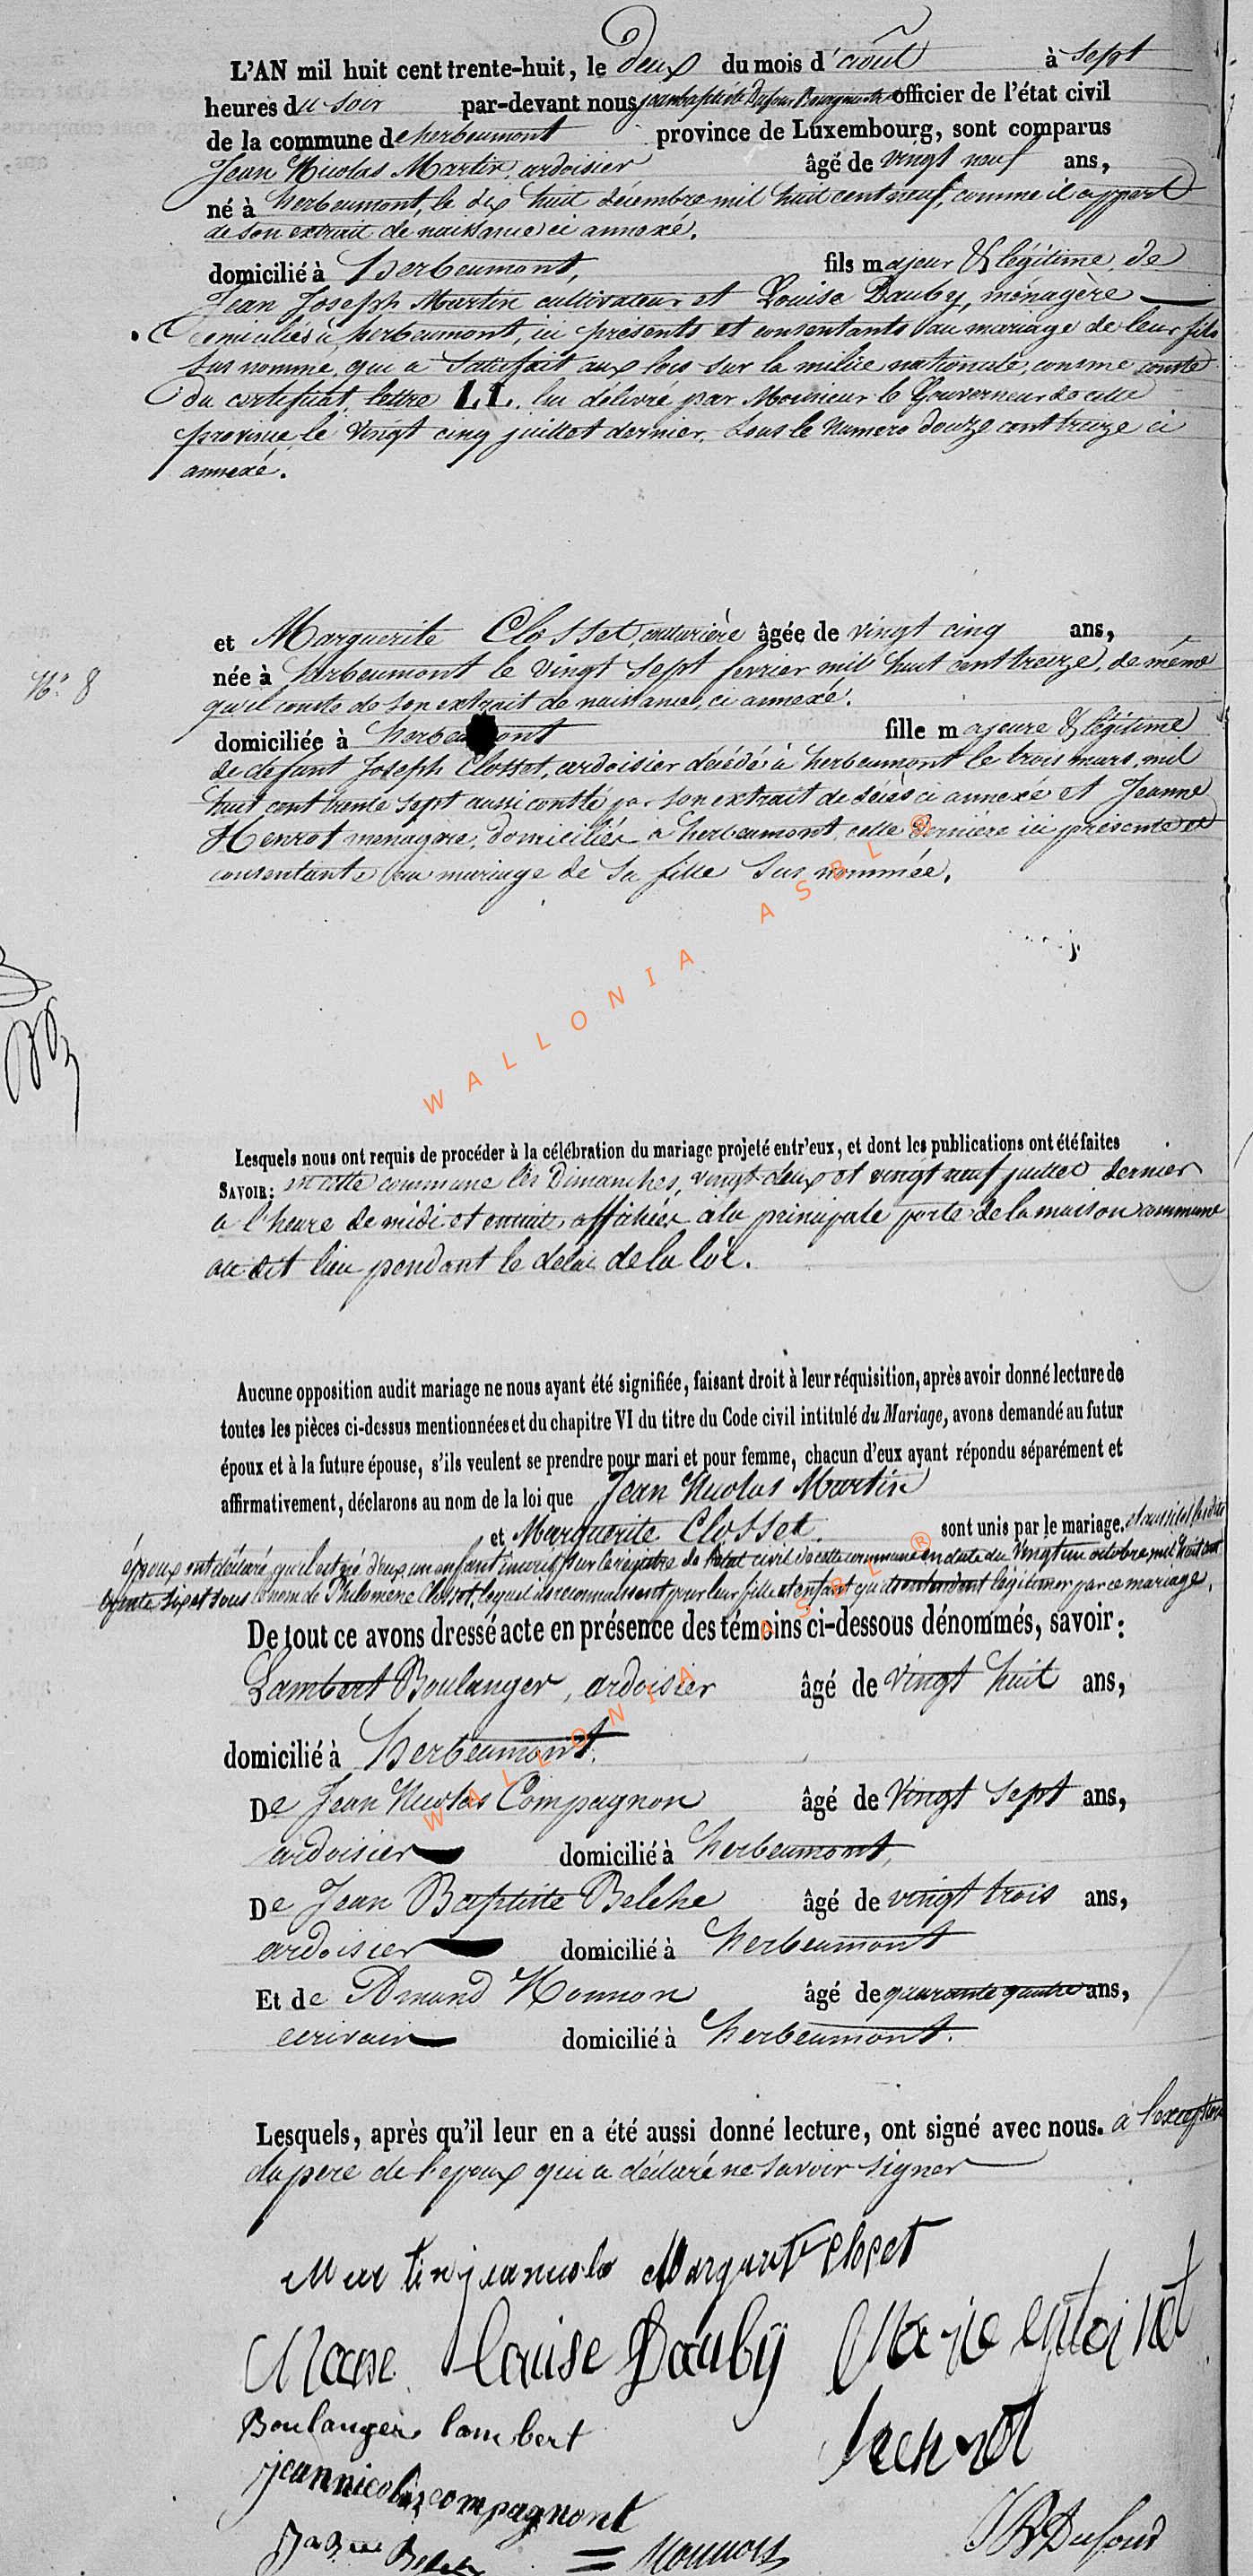 L'AN mil huit cent trente-huit, le deux du mois d'août à sept
heures du soir par-devant nous jean baptiste Dufour Bourgmestre officier de l'état civil
de la commune de herbeumont province de Luxembourg, sont comparus
Jean Nicolas Martin, ardoisier âgé de vingt neuf ans,
né à herbeumont, le dix huit décembre mil huit cent neuf, comme il appert
de son extrait de naissance ci annexé.
domicilié à Herbeumont, fils majeur & légitime, de
Jean Joseph Martin cultivateur et Louise Dauby, ménagère
domiciliés à herbeumont, ici présents et consentants au mariage de leur fils
sus nommé, qui a satisfait aux lois sur la milice nationale, comme conste
du certificat lettre LL. lui délivré par Monsieur le Gouverneur de cette
province, le vingt cinq juillet dernier, sous le Numero douze cent treize ci
annexé.
et Marguerite Closset, couturière âgée de vingt cinq ans,
N° 8
née à herbeumont le vingt sept fevrier mil huit cent treize, de même
qu'il conste de son extrait de naissance, ci annexé.
domiciliée à herbeumont fille majeure & légitime
de defunt Joseph Closset, ardoisier décédé à herbeumont le trois mars, mil
huit cent trente sept aussi consté par son extrait de décès ci annexé et Jeanne
Henrot menagère, domiciliée a herbeumont, cette dernière ici présente et
consentante au mariage de sa fille sus nommée.
WALLONIA ASBL ®
Lesquels nous ont requis de procéder à la célébration du mariage projeté entr'eux, et dont les publications ont été faites
SAVOIR: en cette commune les Dimanches, vingt deux et vingt neuf juillet dernier
a l'heure de midi et ensuite affichées a la principale porte de la maison commune
au dit lieu pendant le délai de la loi.
Aucune opposition audit mariage ne nous ayant été signifiée, faisant droit à leur réquisition, après avoir donné lecture de
toutes les pièces ci-dessus mentionnées et du chapitre VI du titre du Code civil intitulé du Mariage, avons demandé au futur
époux et à la future épouse, s'ils veulent se prendre pour mari et pour femme, chacun d'eux ayant répondu séparément et
affirmativement, déclarons au nom de la loi que Jean Nicolas Martin
et Marguerite Closset. sont unis par le mariage. et aussitôt lesdits
époux ont déclaré, qu'il est né d'eux un enfant inscrit sur le registre de l'état civil de cette commune en date du vingt un octobre mil huit cent
trente six et sous le nom de Philomène Closset, lequel ils reconnaissent pour leur fille et enfant qu'ils entendent légitimer par ce mariage.
De tout ce avons dressé acte en présence des témoins ci-dessous dénommés, savoir:
Lambert Boulanger, ardoisier âgé de vingt huit ans,
domicilié à Herbeumont.
De Jean Nicolas Compagnon âgé de vingt sept ans,
ardoisier domicilié à herbeumont,
De Jean Baptiste Belche âgé de vingt trois ans,
ardoisier domicilié à herbeumont
Et de Amand Monnon âgé de quarante quatre ans,
ecrivain domicilié à herbeumont.
WALLONIA ASBL ®
Lesquels, après qu'il leur en a été aussi donné lecture, ont signé avec nous. à l'exception
du pere de l'epoux qui a déclaré ne savoir signer
Martin jean nicola Margurite Closet
Marie louise Dauby Marie
henrot
Boulanger lambert
jean nicolas compagnont
Monnon
JB Dufour